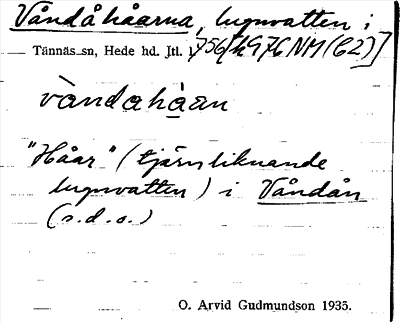 Våndåhåarna, lugnvatten i
Tännäs sn, Hede hd. Jtl. 1756/2976 NM (C2)]
vàndahàan
"Håar" (tjärnliknande
lugnvatten) i Våndån
(s.d.o.)
O. Arvid Gudmundson 1935.